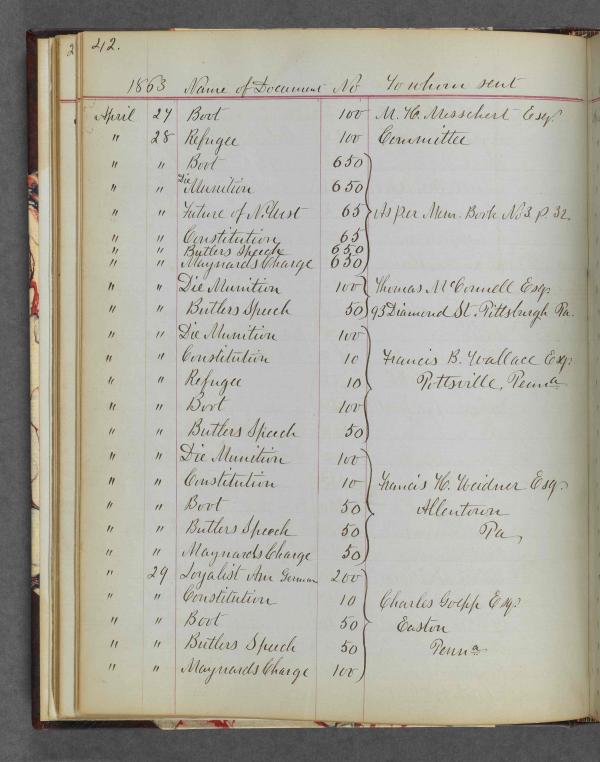 2
42.
1863 Name of Document No To whom sent
April 27 Boot 100 M. H. Messchert Esq.
" 28 Refugee 100 Committee
" " Boot 650
" " Die Munition 650
" " Future of N. West 65 As per Mem. Book No 3 p. 32
" " Constitution 65
" " Butlers Speech 650
" " Maynards Charge 650
" " Die Munition 100 Thomas McConnell Esq.
" " Butlers Speech 50 95 Diamond St. Pittsburgh Pa.
" " Die Munition 100
" " Constitution 10 Francis B. Wallace Esq.
" " Refugee 10 Pottsville, Penna
" " Boot 100
" " Butlers Speech 50
" " Die Munition 100
" " Constitution 10 Francis H. Weidner Esq.
" " Boot 50 Allentown
" " Butlers Speech 50 Pa,
" " Maynards Charge 50
" 29 Loyalist Am German 200
" " Constitution 10 Charles Goepp Esq.
" " Boot 50 Easton
" " Butlers Speech 50 Penna
" " Maynards Charge 100